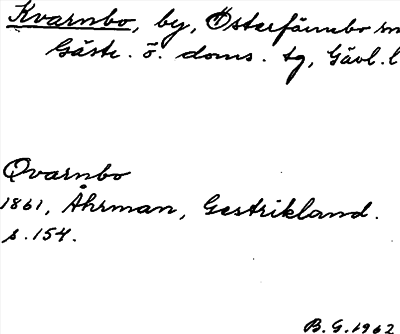 Kvarnbo, by, Österfärnebo sn
Gästr. ö. doms. tg, Gävl. l
Qvarnbo
1861, Åhrman, Gestrikland.
s. 154.
B.G. 1962